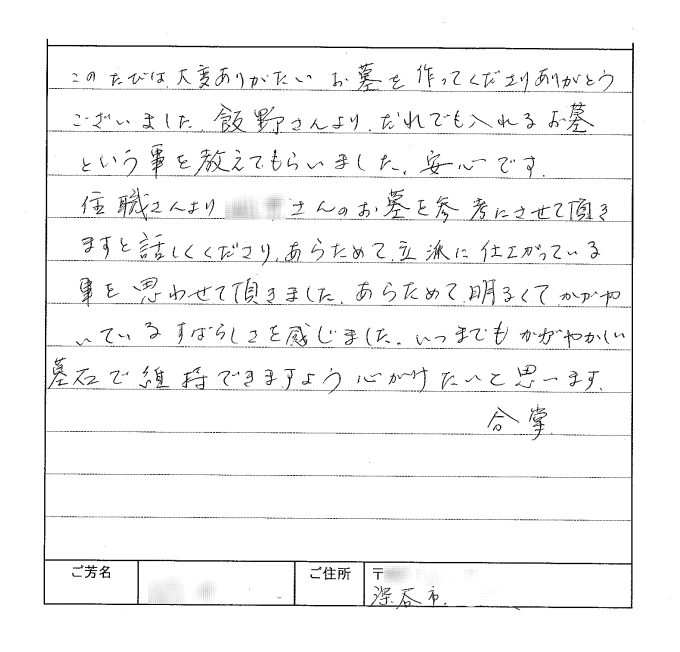 このたびは大変ありがたいお墓を作ってくださりありがとう
ございました。飯野さんより、だれでも入れるお墓
という事を教えてもらいました。安心です。
住職さんより さんのお墓を参考にさせて頂き
ますと話しくださり、あらためて、立派に仕上がっている
事を思わせて頂きました。あらためて、明るくて、かがや
いているすばらしさを感じました。いつまでもかがやかしい
墓石で維持できますよう心がけたいと思います。
合掌
ご芳名 ご住所 〒
深谷市